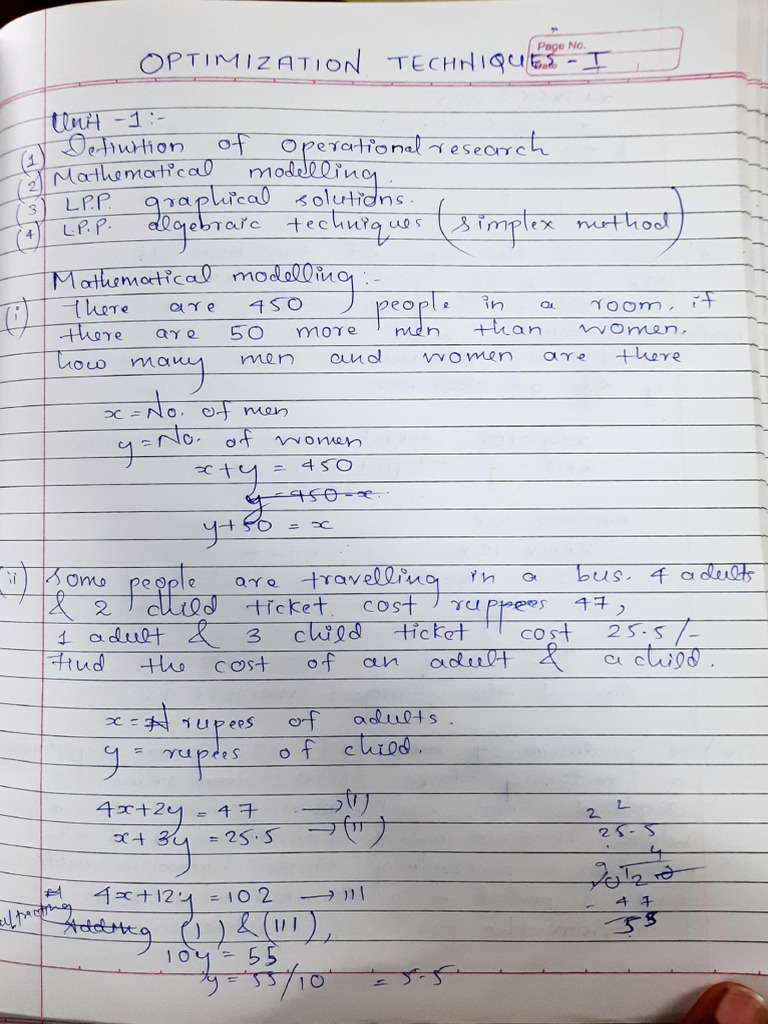 Page No.
Date
OPTIMIZATION TECHNIQUES - I
Unit - 1 :-
(1) Definition of operational research
(2) Mathematical modelling.
(3) L.P.P. graphical solutions.
(4) L.P.P. algebraic techniques (simplex method)
Mathematical modelling :-
(i) There are 450 people in a room. if
there are 50 more men than women.
how many men and women are there
x = No. of men
y = No. of women
x + y = 450
y = 450 - x
y + 50 = x
(ii) Some people are travelling in a bus. 4 adults
& 2 child ticket cost ruppees 47,
1 adult & 3 child ticket cost 25.5/-
Find the cost of an adult & a child.
x = rupees of adults.
y = rupees of child.
4x + 2y = 47 → (I)
x + 3y = 25.5 → (II)
2 2
25.5
4
4x + 12y = 102 → III
Adding (I) & (III),
- 47
55
10y = 55
y = 55/10 = 5.5